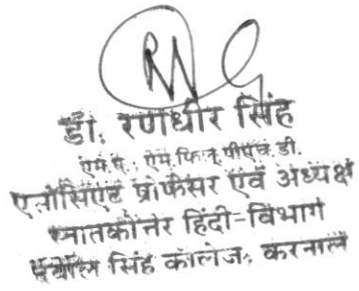 डा. रणधीर सिंह
एम.ए., ऐम.फिल, पीएच.डी.
एसोसिएट प्रोफेसर एवं अध्यक्ष
स्नातकोत्तर हिंदी-विभाग
सिंह कालेज, करनाल